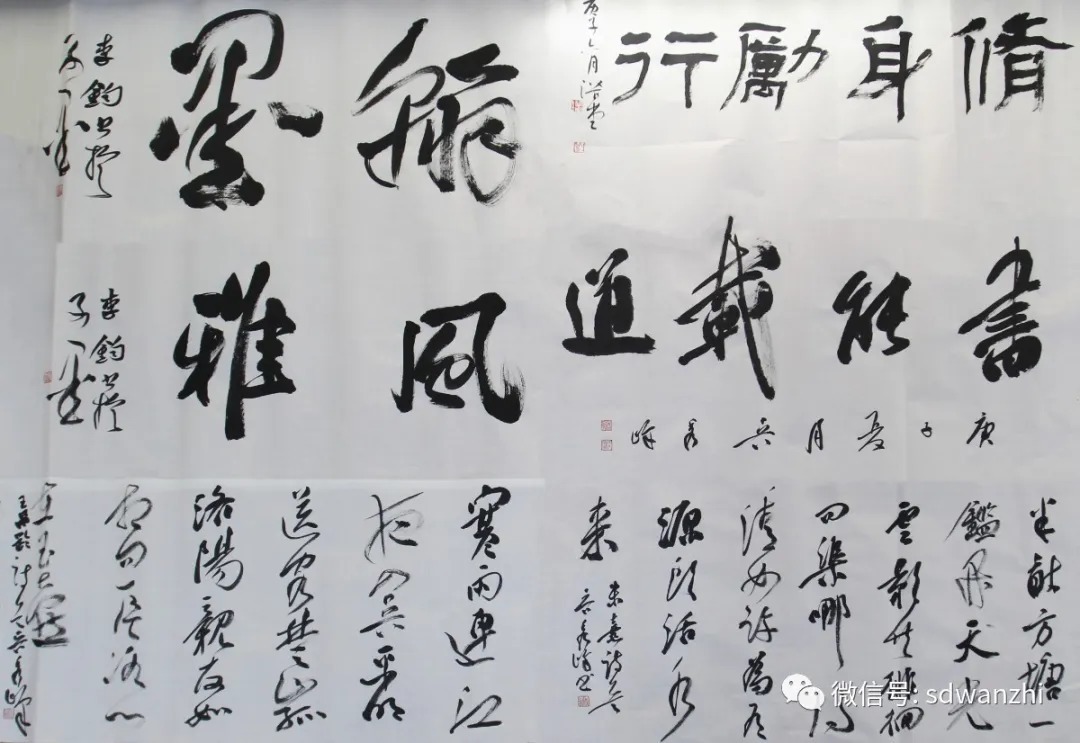 脩身勵行
庚子六月
書能載道
庚子夏月 秀峰
半畝方塘一
鑑開天光
雲影共徘徊
問渠哪得
清如許為有
源頭活水
来
朱熹詩
翰墨
李鈞
風雅
李鈞
寒雨連江
夜入吳平明
送客楚山孤
洛陽親友如
相問一片冰心
在玉壺
微信号: sdwanzhi